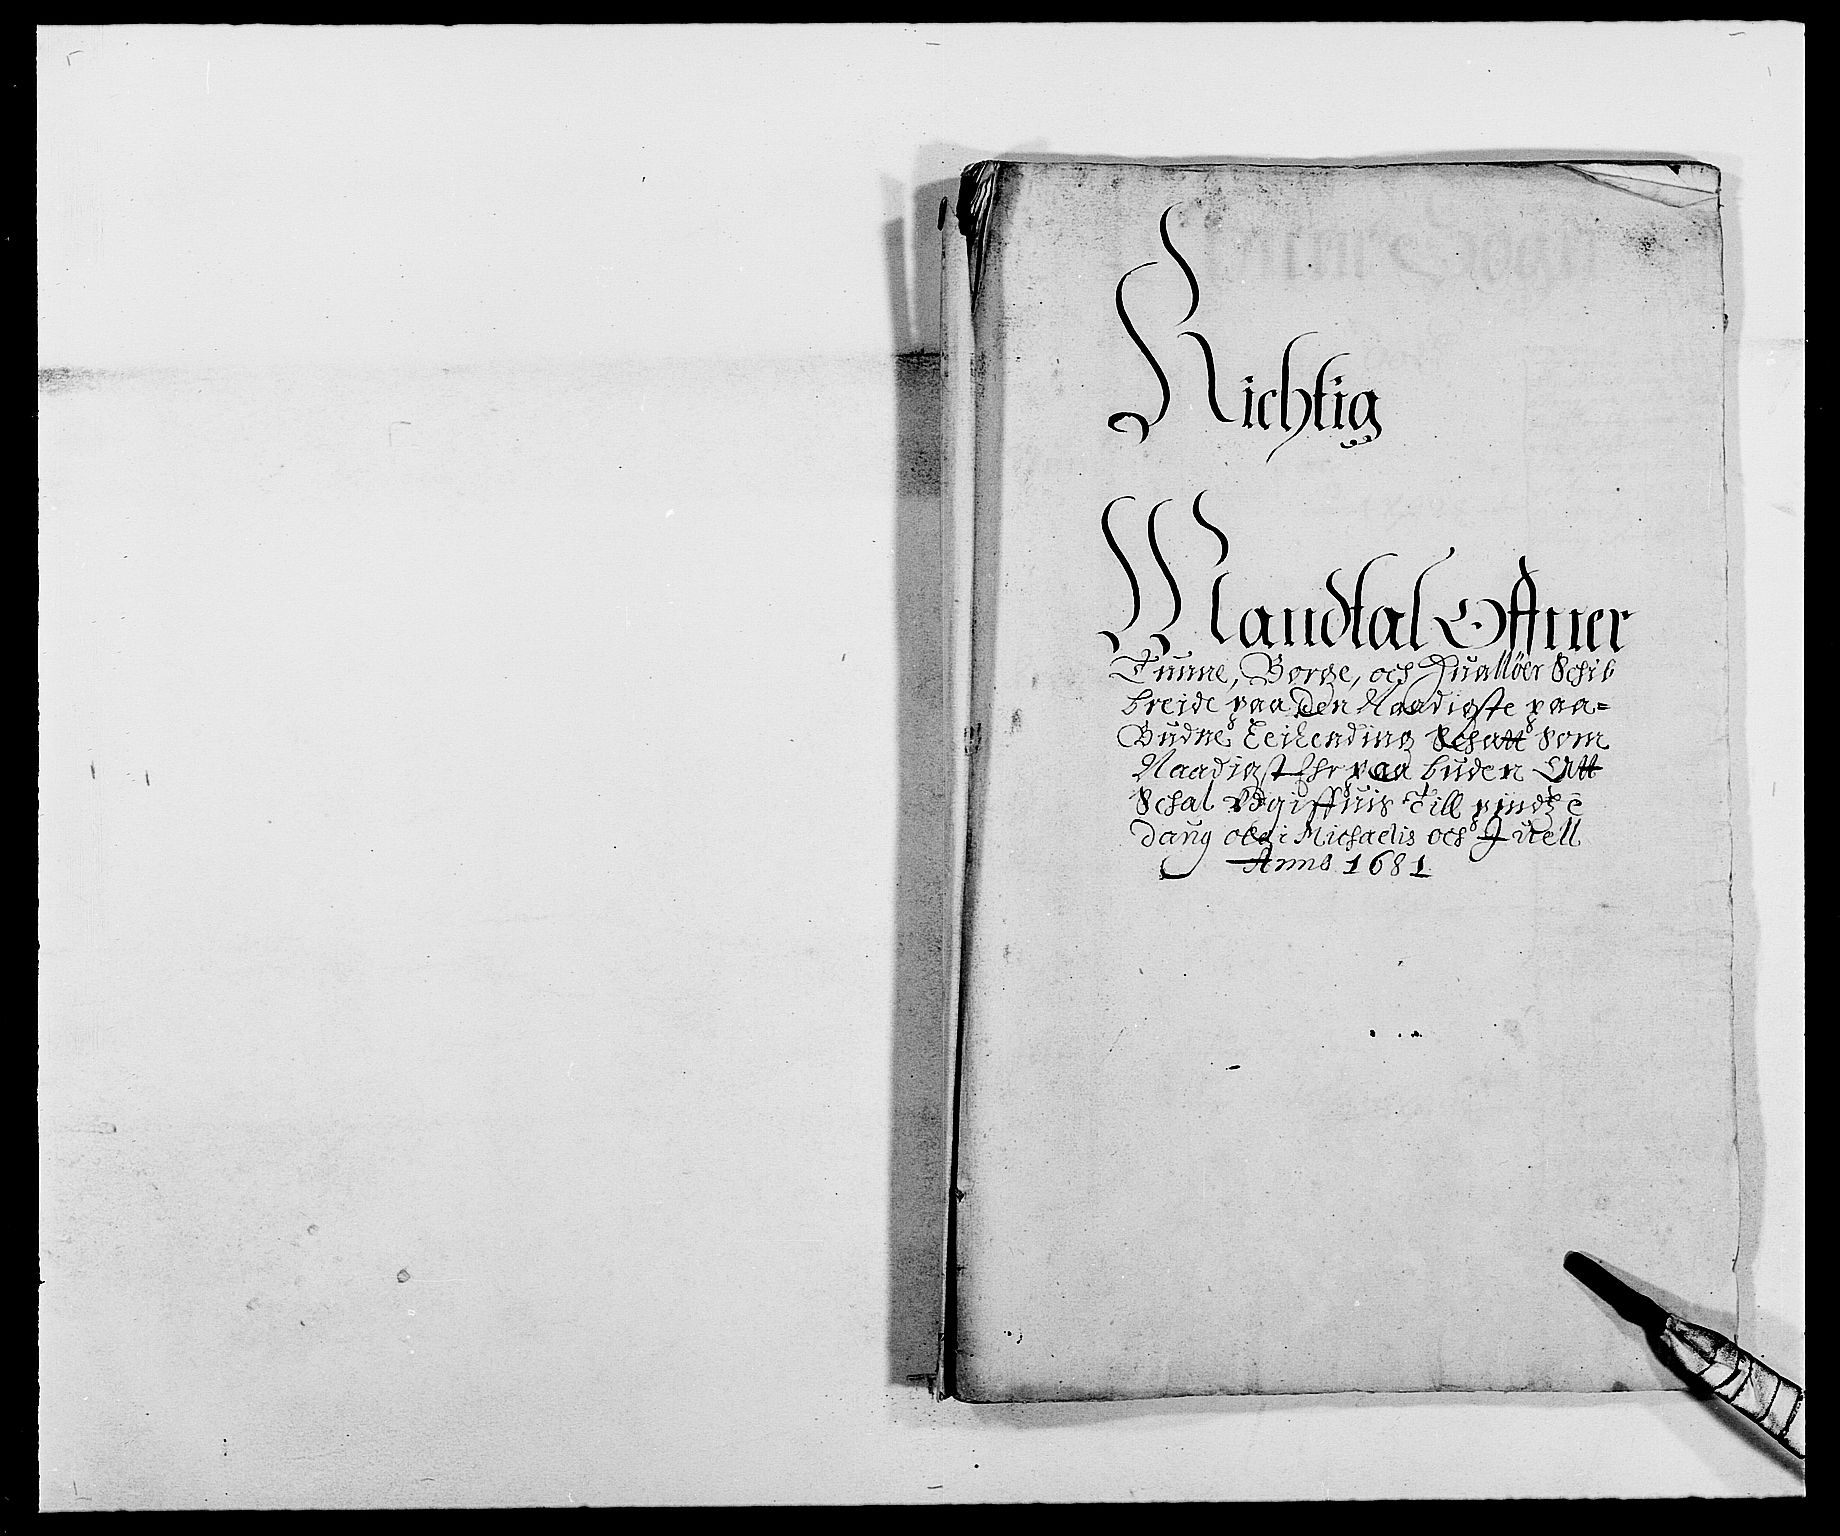 Richtig
Mandtal Offuer
Tunne, Borge, och Huallöer Schib
breide paa den Naadigste paa=
Budne Leilending Schatt Som
Naadigst Ehr paa buden Att
Schal Vdgiffuis Till pindtze
daug och Michaelis och Juell
Anno 1681